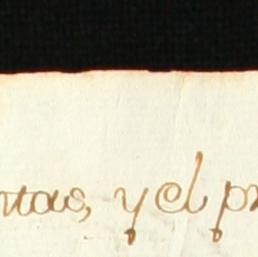 ntas, y el pr